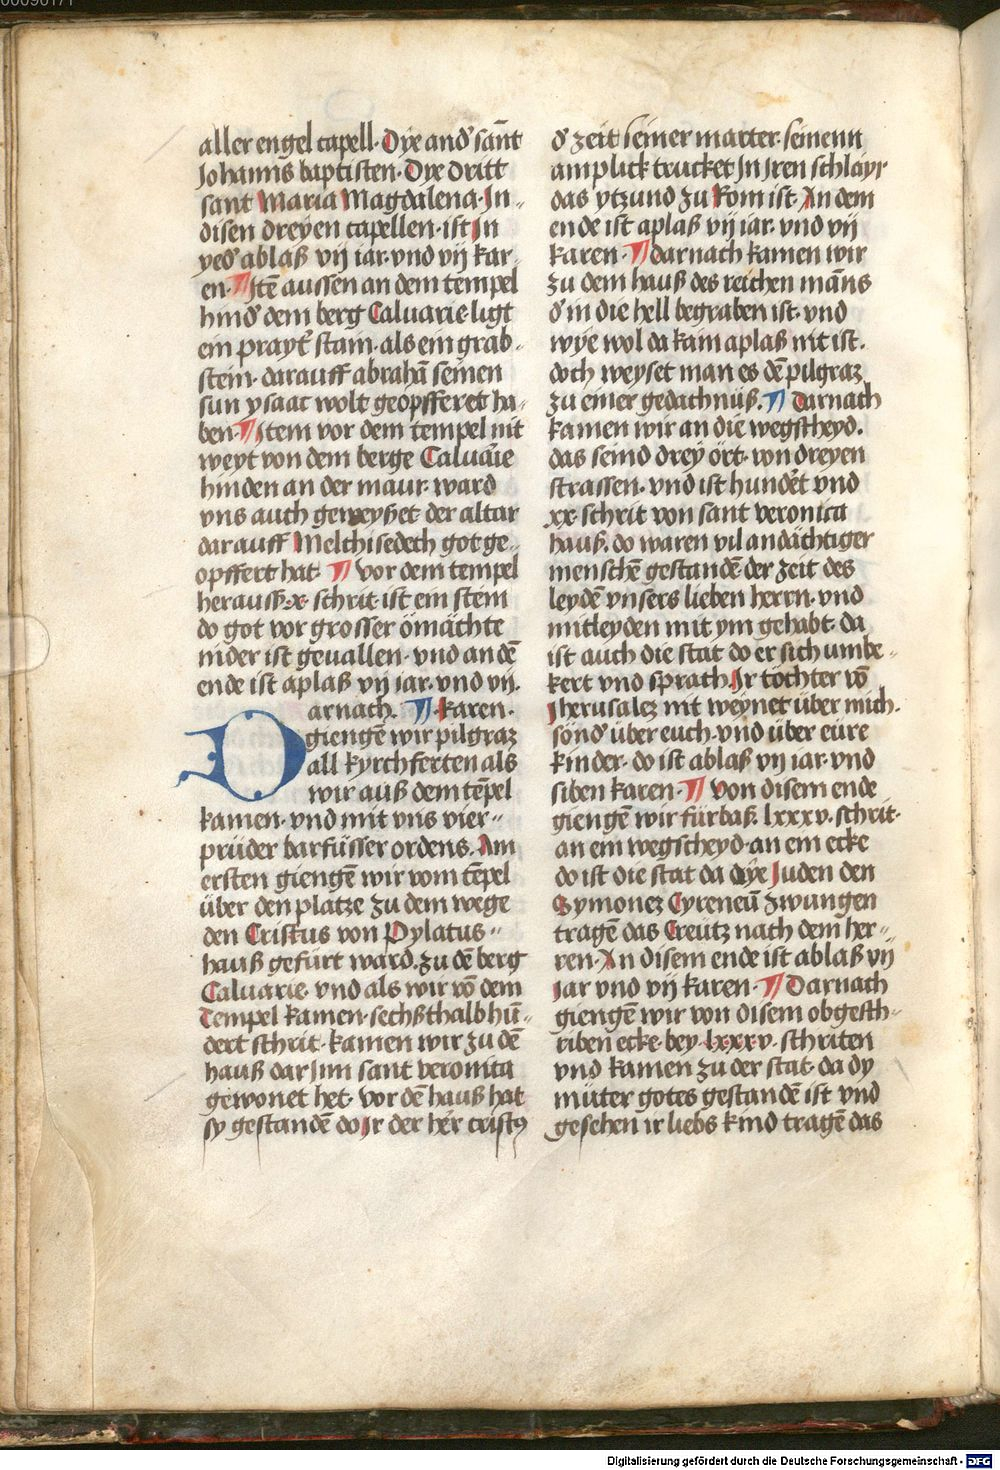 aller engel capell· Dÿe and̛ san̄t
Johanns baptisten· Dye dritt
sant Maria Magdalena· In-
disen dreyen capellen· ist In
yed̛ ablaß vij iar· vnd vij kar-
en· ¶ Itē aussen an dem tempel
hind̛ dem berg Caluarie ligt
ein prayt̛ stam· als ein grab-
stein· darauff abrahā seinen
sun ysaac wolt geopfferet ha-
ben· ¶ Item vor dem tempel nit
weyt von dem berge Caluarie
hinden an der maur· ward
vns auch geweyßet der altar
darauff Melchisedech got ge-
opffert hat· ¶ vor dem tempel
herauß·x· schrit· ist ein stein
do got vor grosser ömächte
nider ist geuallen· vnd an dē
ende ist aplaß vij iar· vnd vij·
Darnach· ¶ ·karen·
giengē wir pilgraz
all kyrchferten als
wir auß dem tēpel
kamen· vnd mit vns vier-
prüder barfüsser ordens· Am
ersten giengē wir vom tēpel
über den platze zu dem wege
den Cristus von Pylatus-
hauß gefürt ward· zu dē berg
Caluarie· vnd als wir vō dem
Tempel kamen· sechßthalb hū-
dert schrit· kamen wir zu dē
hauß dar Inn sant veronica
gewonet het· vor dē hauß hat
sy gestandē do Ir der hér cristus
d̛ zeit seiner marter· seinenn
amplick trucket In Iren schlayr
das ytzund zu Rom ist· An dem
ende ist aplaß vij iar· vnd vij
karen· ¶ darnach kamen wir
zu dem hauß des reichen māns
d̛ in die hell begraben ist· vnd
wÿe wol da kain aplaß nit ist·
doch weyset man es dē pilgraz
zu einer gedachnüß· ¶ Darnach
kamen wir an die wegscheyd·
das seind drey ört· von dreyen
strassen· vnd ist hundert vnd
xx· schrit von sant veronica
hauß· do waren vil andächtiger
menschē gestandē der zeit des
leydē vnsers lieben herrn· vnd
mitleyden mit ym gehabt· da
ist auch die stat do er sich umbe-
kert vnd sprach Ir töchter vō
Jherusalez nit weynet über mich·
sönd̛ über euch· vnd über eüre
kinder· do ist ablaß vij iar· vnd
siben karen· ¶ von disem ende
giengē wir fürbaß· lxxxv· schrit·
an ein wegscheyd· an em ecke
do ist die stat da dÿe Juden den
Symonez Cyreneū zwungen
tragē das Creutz nach dem her-
ren· An disem ende ist ablaß vij
Jar vnd vij karen· ¶ Darnach
giengē wir von disem obgesch-
riben ecke· bey· lxxxv· schriten
vnd kamen zu der stat· da dy
müter gotes gestandē ist vnd
gesehen ir liebs kind tragē das
Digitalisierung gefördert durch die Deutsche Forschungsgemeinschaft - DFG